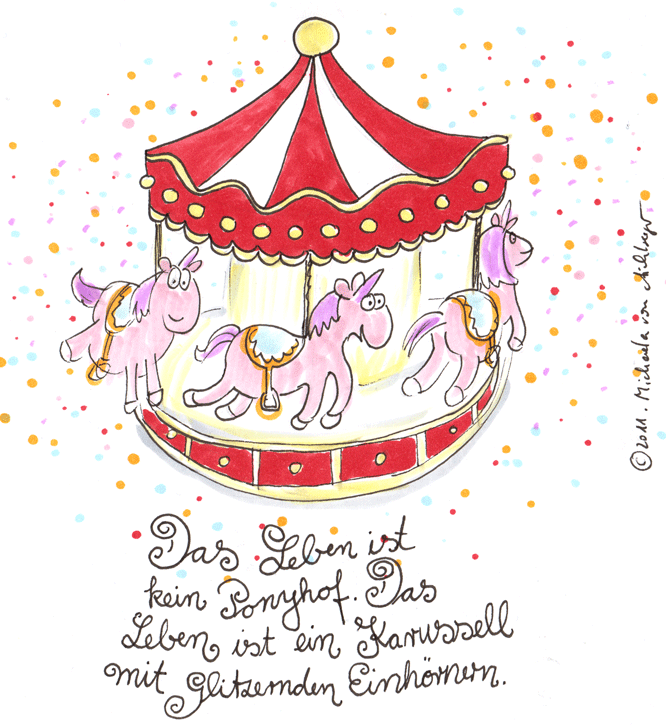 Das Leben ist
kein Ponyhof. Das
Leben ist ein Karussell
mit Glitzernden Einhörnern.
©2011. Michaela von Aichberger